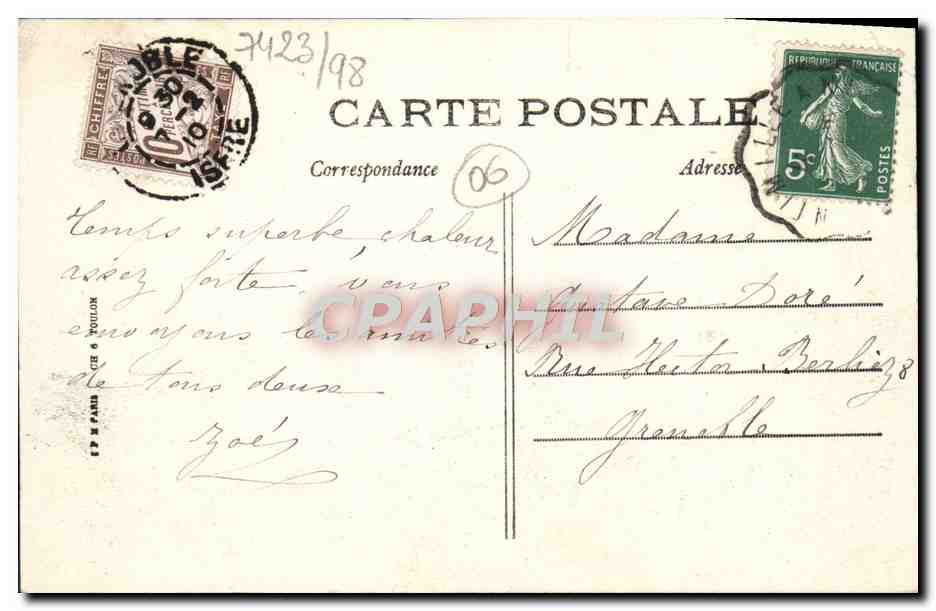 7423/98
CARTE POSTALE
Correspondance
06
Adresse
GRENOBLE
9 30
7 - 2
10
ISERE
CHIFFRE
TAXE
POSTES
RF
10
CENTIMES
A PERCEVOIR
REPUBLIQUE FRANÇAISE
5c
POSTES
Temps superbe, chaleur
assez forte, vous
envoyons les amitiés
de tous deux
Zoé
Madame
Gustave Doré
Rue Hector Berlioz 8
Grenoble
CPAPHIL
S P M PARIS CH 6 TOULON